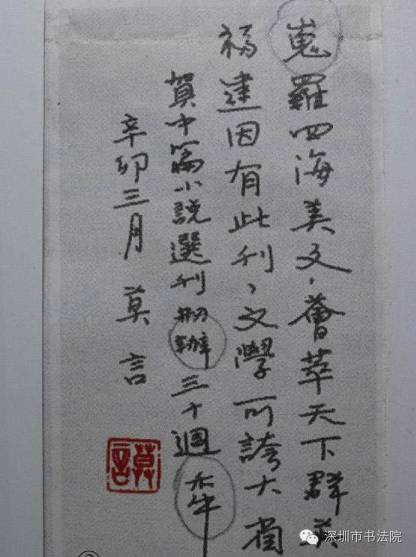 嵬羅四海美文,薈萃天下群英
福建因有此刊,文學可誇大省
賀中篇小説選刊刱辦三十週年
辛卯三月 莫言
莫言
深圳市书法院